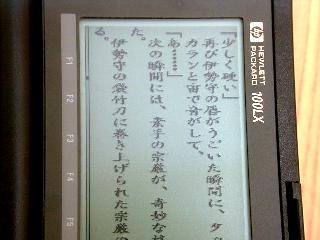 「少しく硬い」
再び伊勢守の唇がうごいた瞬間に、タ
カランと宙で音がして、
「あ………」
次の瞬間には、素手の宗厳が、奇妙な
た。
伊勢守の袋竹刀に巻き上げられた宗厳の
る。
HEWLETT
PACKARD
100LX
F1
F2
F3
F4
F5